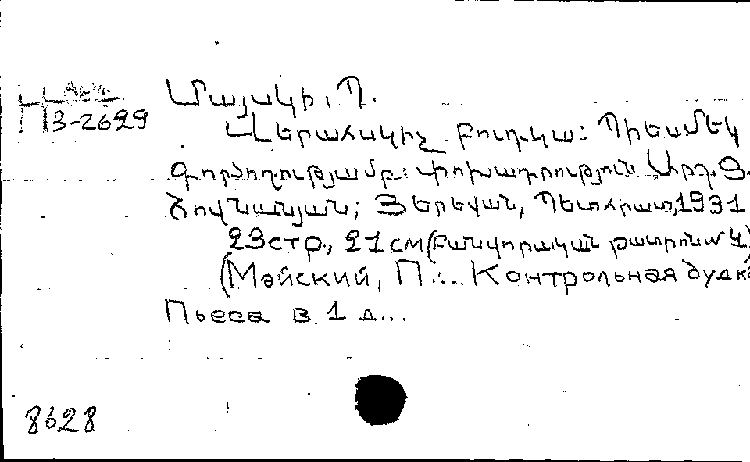 Մայսկի, Պ.
Վերահսկիչ բուդկա: Պիեսմեկ
գործողությամբ: փոխադրություն Արդ. Յ.
Հովնանյան; Յերեվան, Պետհրատ, 1931
23 стр., 21 см (Բանվորական թատրոն № 4)
(Мойский, П... Контрольная будка
Пьеса в 1 д...
Н
З-2699
8628